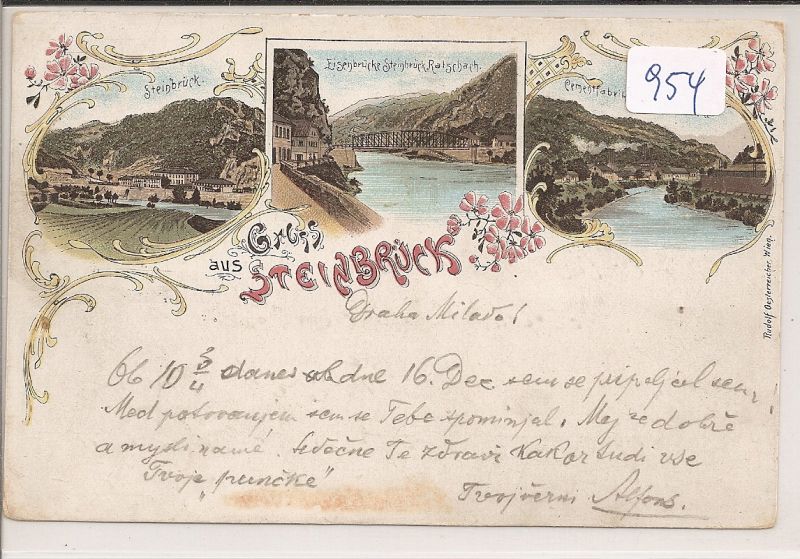 Steinbrück.
Eisenbrücke Steinbrück Ratschach.
954
Cementfabri
Gruss
aus
STEINBRÜCK
Rudolf Oesterreicher, Wien.
Draha Milado!
Ob 10 3/4 danes dne 16. Dec sem se pripeljal sem!
Med potovanjem sem se Tebe spominjal. Mej se dobře
a mysli na mé. Srdečne Te zdravi kakor tudi vse
Tvoje „punčke"
Tvoj věrni Alfons.